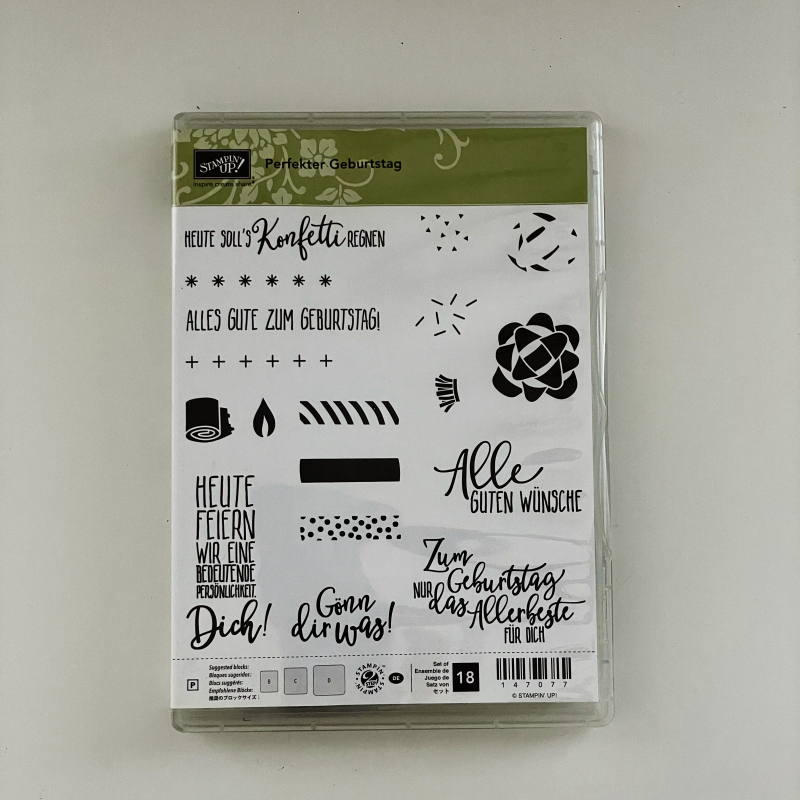 STAMPIN' UP!®
inspire create share®
Perfekter Geburtstag
HEUTE SOLL'S Konfetti REGNEN
ALLES GUTE ZUM GEBURTSTAG!
Alle
GUTEN WÜNSCHE
HEUTE
FEIERN
WIR EINE
BEDEUTENDE
PERSÖNLICHKEIT.
Dich!
Gönn
dir was!
Zum
Geburtstag
NUR das Allerbeste
FÜR DICH
P
Suggested blocks:
Bloques sugeridos:
Blocs suggérés:
Empfohlene Blöcke:
推奨のブロックサイズ:
B
C
D
STAMPIN'
2 STEP
STAMPIN'
DE
Set of
Ensemble de
Juego de
Satz von
セット
18
147077
© STAMPIN' UP!